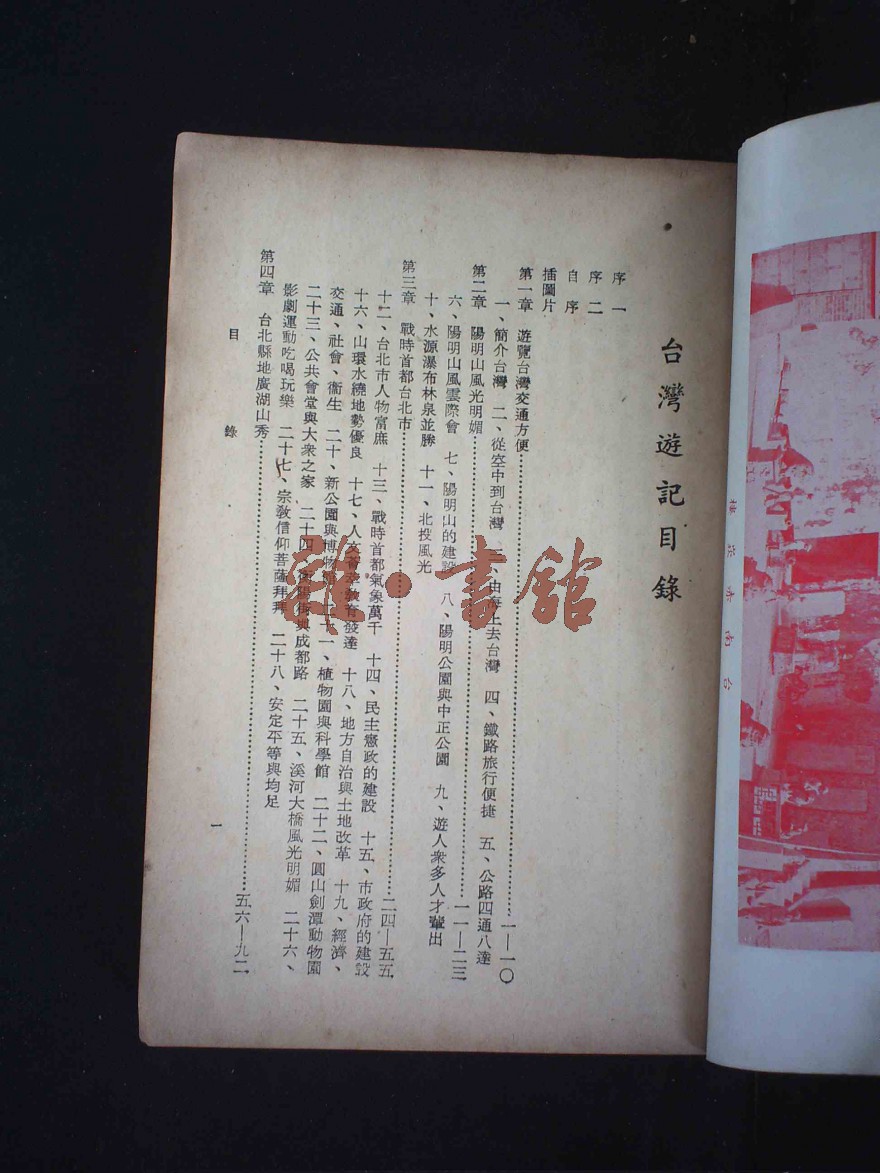 台灣遊記目錄
序一
序二
自序
插圖片
第一章 遊覽台灣交通方便……………一—一〇
一、簡介台灣 二、從空中到台灣 三、由海上去台灣 四、鐵路旅行便捷 五、公路四通八達
第二章 陽明山風光明媚……………一一—二三
六、陽明山風雲際會 七、陽明山的建設 八、陽明公園與中正公園 九、遊人衆多人才輩出
十、水源瀑布林泉並勝 十一、北投風光
第三章 戰時首都台北市……………二四—五五
十二、台北市人物富庶 十三、戰時首都氣象萬千 十四、民主憲政的建設 十五、市政府的建設
十六、山環水繞地勢優良 十七、人文薈萃教育發達 十八、地方自治與土地改革 十九、經濟、
交通、社會、衞生 二十、新公園與博物館 二十一、植物園與科學館 二十二、圓山劍潭動物園
二十三、公共會堂與大衆之家 二十四、衡陽街與成都路 二十五、溪河大橋風光明媚 二十六、
影劇運動吃喝玩樂 二十七、宗敎信仰菩薩拜拜 二十八、安定平等與均足
第四章 台北縣地廣湖山秀……………五六—九二
目錄
一
雜·書館
台南赤崁樓